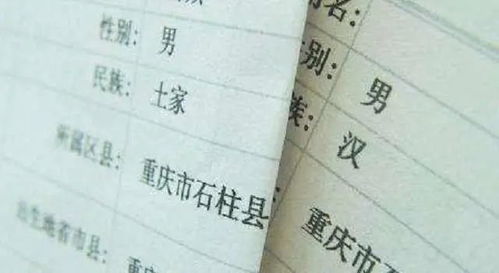 性别：男
民族：土家
所属区县：重庆市石柱县
出生地省市县：重庆市
名：
别：男
族：汉
重庆市